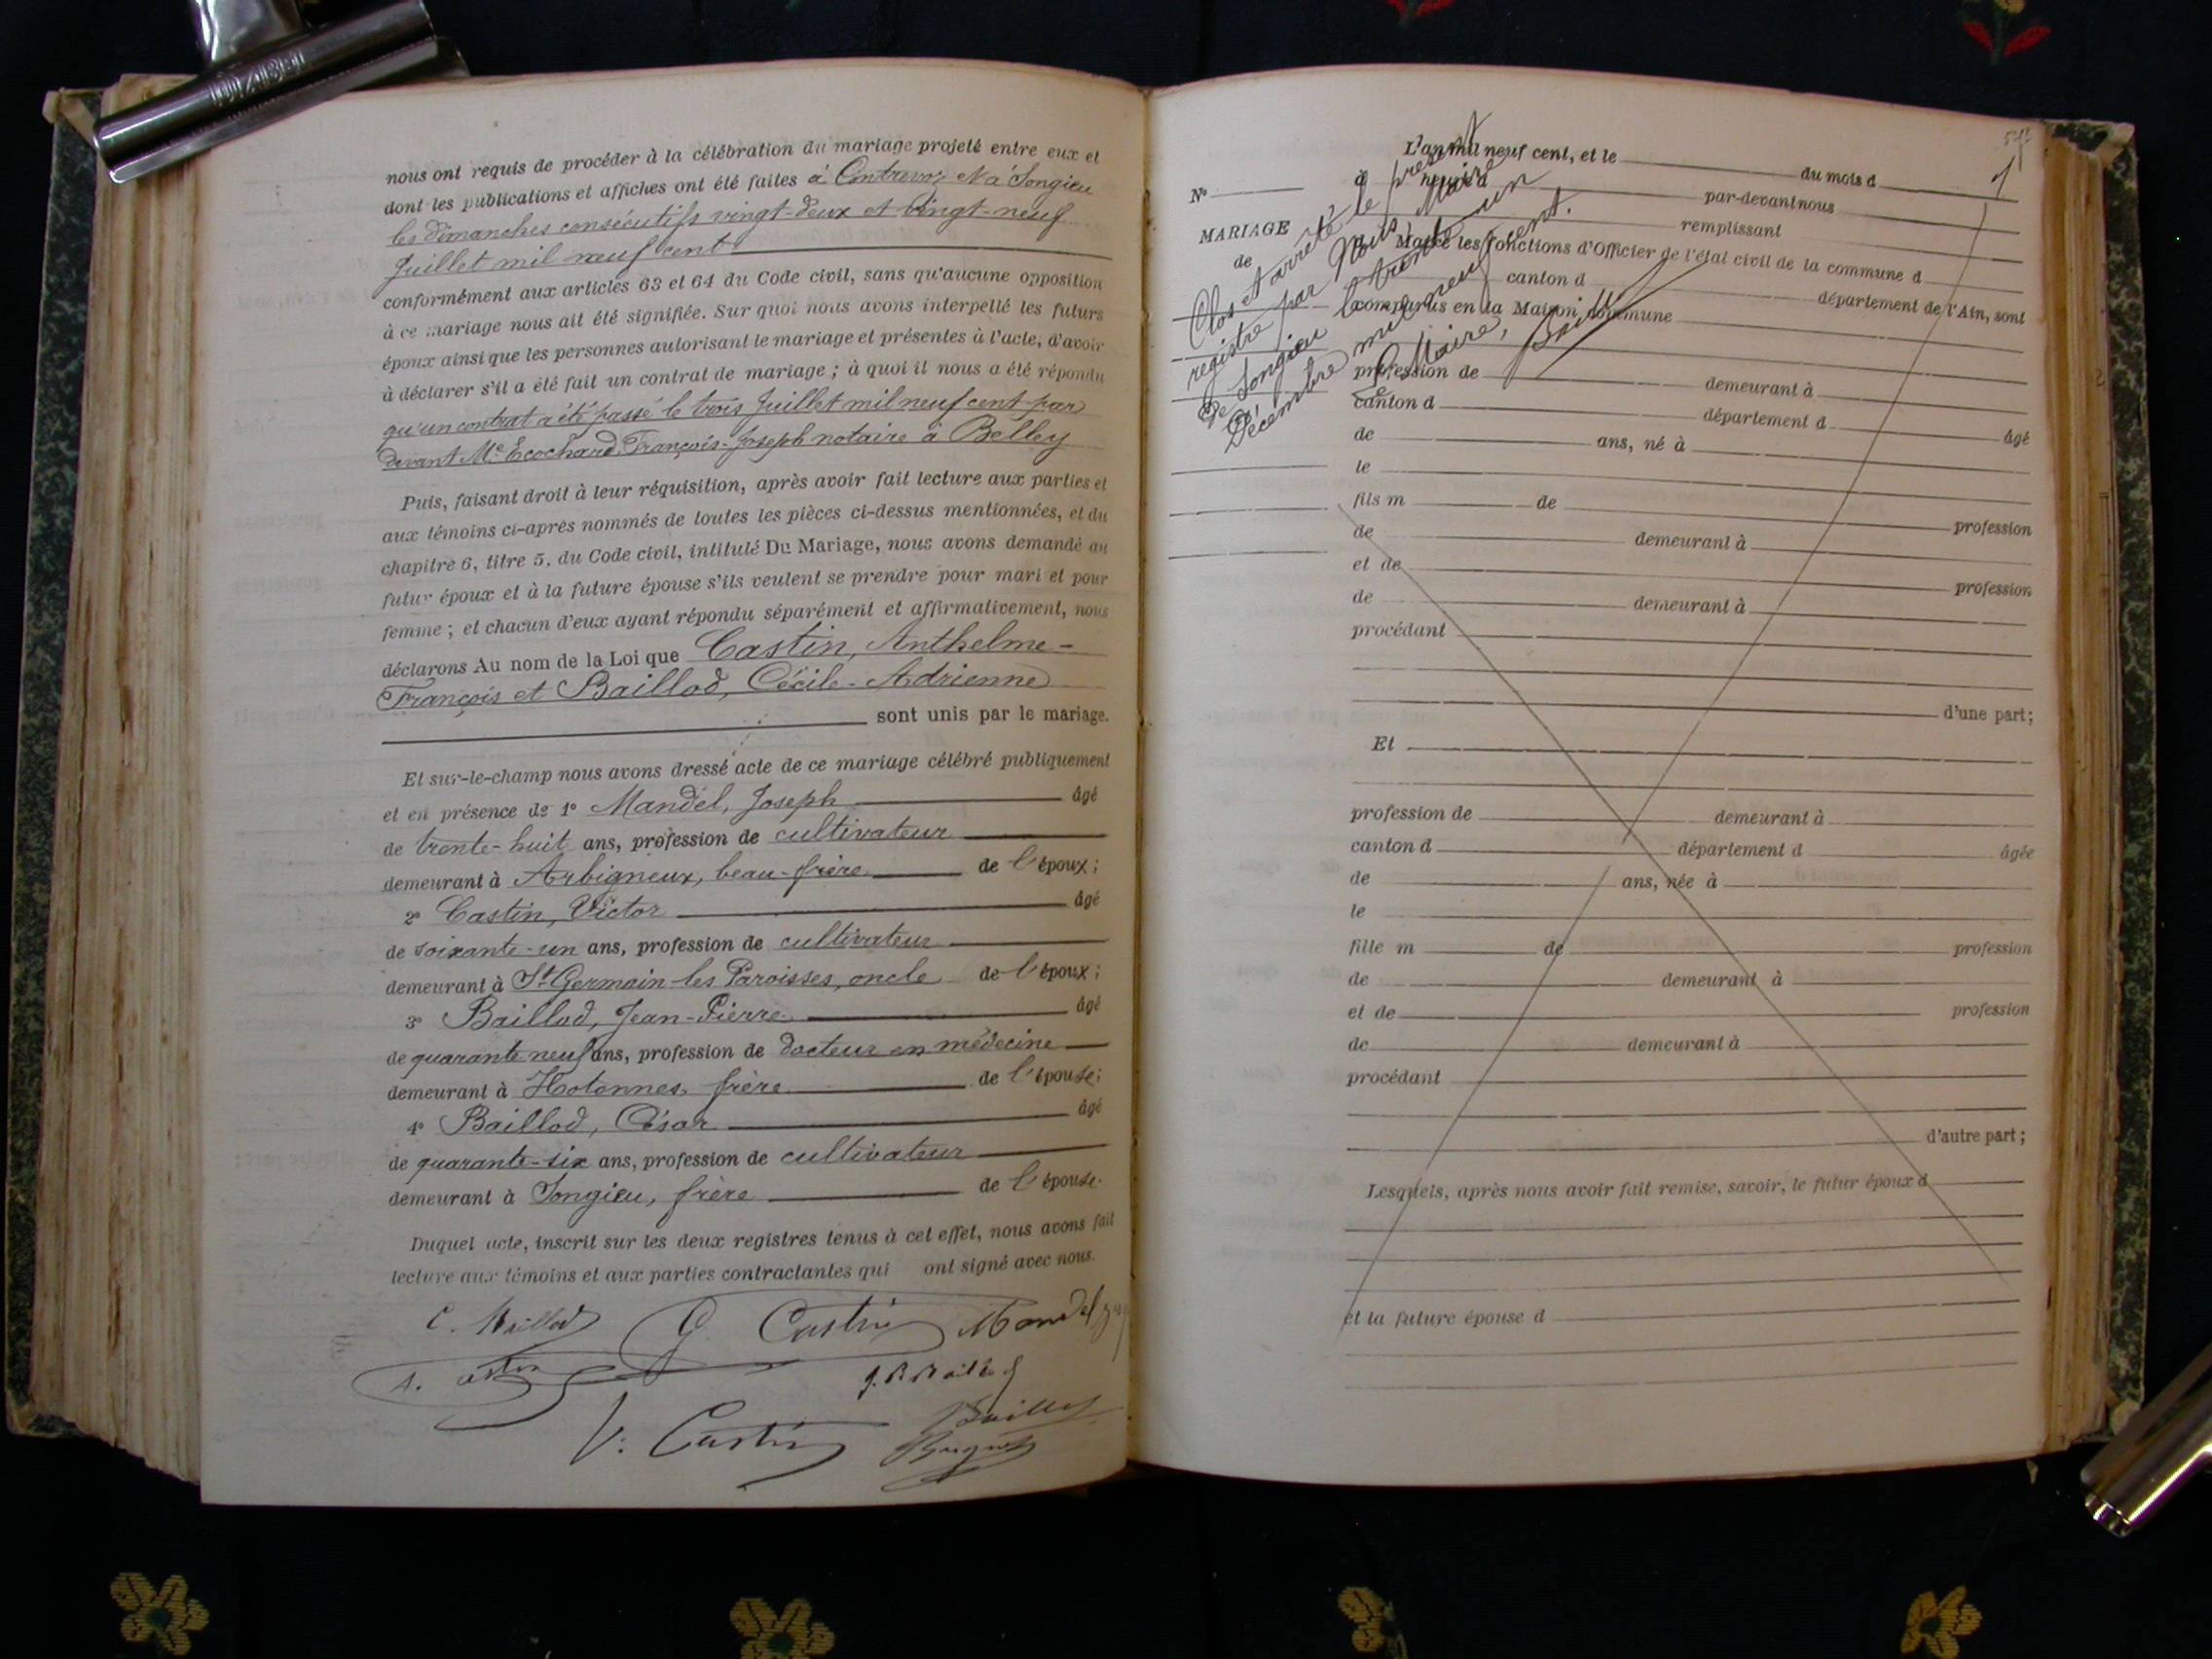 nous ont requis de procéder à la célébration du mariage projeté entre eux et
dont les publications et affiches ont été faites à Contrevoz et à Songieu
les dimanches consécutifs vingt-deux et vingt-neuf
Juillet mil neuf cent
conformément aux articles 63 et 64 du Code civil, sans qu'aucune opposition
à ce mariage nous ait été signifiée. Sur quoi nous avons interpellé les futurs
époux ainsi que les personnes autorisant le mariage et présentes à l'acte, d'avoir
à déclarer s'il a été fait un contrat de mariage ; à quoi il nous a été répondu
qu'un contrat a été passé le trois Juillet mil neuf cent par
devant Me Ecochard, François-Joseph notaire à Belley
Puis, faisant droit à leur réquisition, après avoir fait lecture aux parties et
aux témoins ci-après nommés de toutes les pièces ci-dessus mentionnées, et du
chapitre 6, titre 5, du Code civil, intitulé Du Mariage, nous avons demandé au
futur époux et à la future épouse s'ils veulent se prendre pour mari et pour
femme ; et chacun d'eux ayant répondu séparément et affirmativement, nous
déclarons Au nom de la Loi que Castin, Anthelme-
François et Baillod, Cécile-Adrienne
sont unis par le mariage.
Et sur-le-champ nous avons dressé acte de ce mariage célébré publiquement
et en présence de 1° Mandel, Joseph âgé
de trente-huit ans, profession de cultivateur
demeurant à Arbigneux, beau-frère de l'époux ;
2° Castin, Victor âgé
de soixante-un ans, profession de cultivateur
demeurant à St Germain-les-Paroisses, oncle de l'époux ;
3° Baillod, Jean-Pierre âgé
de quarante neuf ans, profession de docteur en médecine
demeurant à Hotonnes, frère de l'épouse ;
4° Baillod, César âgé
de quarante-six ans, profession de cultivateur
demeurant à Songieu, frère de l'épouse.
Duquel acte, inscrit sur les deux registres tenus à cet effet, nous avons fait
lecture aux témoins et aux parties contractantes qui ont signé avec nous.
C. Baillod G. Castin Mandel
A. Castin J. P. Baillod
V. Castin Baillod
L'an mil neuf cent, et le du mois d
N° à heure d par-devant nous
MARIAGE remplissant
de Maire les fonctions d'Officier de l'état civil de la commune d
canton d département de l'Ain, sont
comparus en la Maison commune
Clos et arrêté le présent
registre par Nous, Maire
de Songieu le trente-un
Décembre mil neuf cent.
Le Maire,
Baillod
profession de demeurant à
canton d département d âgé
de ans, né à
le
fils m de profession
de demeurant à
et de profession
de demeurant à
procédant
d'une part ;
Et
profession de demeurant à
canton d département d âgée
de ans, née à
le
fille m de profession
de demeurant à
et de profession
de demeurant à
procédant
d'autre part ;
Lesquels, après nous avoir fait remise, savoir, le futur époux d
et la future épouse d